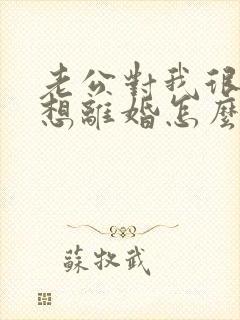 老公對我很
想離婚怎麼
蘇牧武